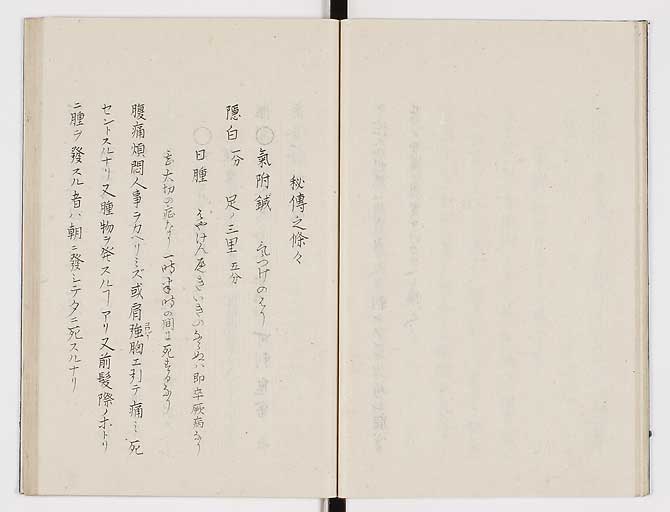 秘傳之條々
○氣附鍼 気つけのはり
隠白 一分 足ノ三里 五分
○日腫 はやけん 即卒厥病なり
至大切の症なり 一時半時の間に死するなり
腹痛煩悶人事ヲカヘリミズ或肩強胸エ引テ痛ミ死
セントスルナリ又腫物ヲ発スルヿアリ又前髪際ノホトリ
ニ腫ヲ發スル者ハ朝ニ發シテタニ死スルナリ